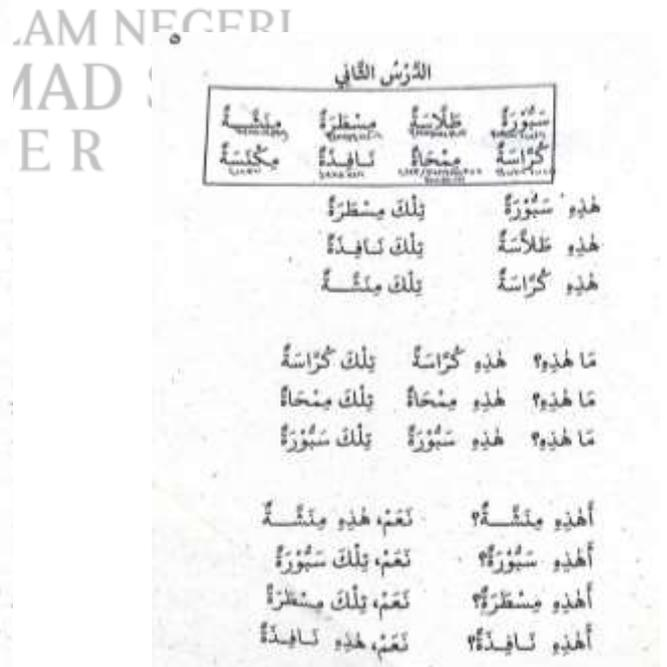 LAM NEGERI
MAD
ER
٥
الدَّرْسُ الثَّانِي
سَبُّوْرَةٌ طَلَّاسَةٌ مِسْطَرَةٌ مِنَشَّــةٌ
كُرَّاسَةٌ مِمْحَاةٌ نَـافِـذَةٌ مِكْنَسَةٌ
هٰذِهِ سَبُّوْرَةٌ تِلْكَ مِسْطَرَةٌ
هٰذِهِ طَلاَّسَةٌ تِلْكَ نَـافِـذَةٌ
هٰذِهِ كُرَّاسَةٌ تِلْكَ مِنَشَّــةٌ
مَا هٰذِهِ؟ هٰذِهِ كُرَّاسَةٌ تِلْكَ كُرَّاسَةٌ
مَا هٰذِهِ؟ هٰذِهِ مِمْحَاةٌ تِلْكَ مِمْحَاةٌ
مَا هٰذِهِ؟ هٰذِهِ سَبُّوْرَةٌ تِلْكَ سَبُّوْرَةٌ
أَهٰذِهِ مِنَشَّــةٌ؟ نَعَمْ، هٰذِهِ مِنَشَّــةٌ
أَهٰذِهِ سَبُّوْرَةٌ؟ نَعَمْ، تِلْكَ سَبُّوْرَةٌ
أَهٰذِهِ مِسْطَرَةٌ؟ نَعَمْ، تِلْكَ مِسْطَرَةٌ
أَهٰذِهِ نَـافِـذَةٌ؟ نَعَمْ، هٰذِهِ نَـافِـذَةٌ